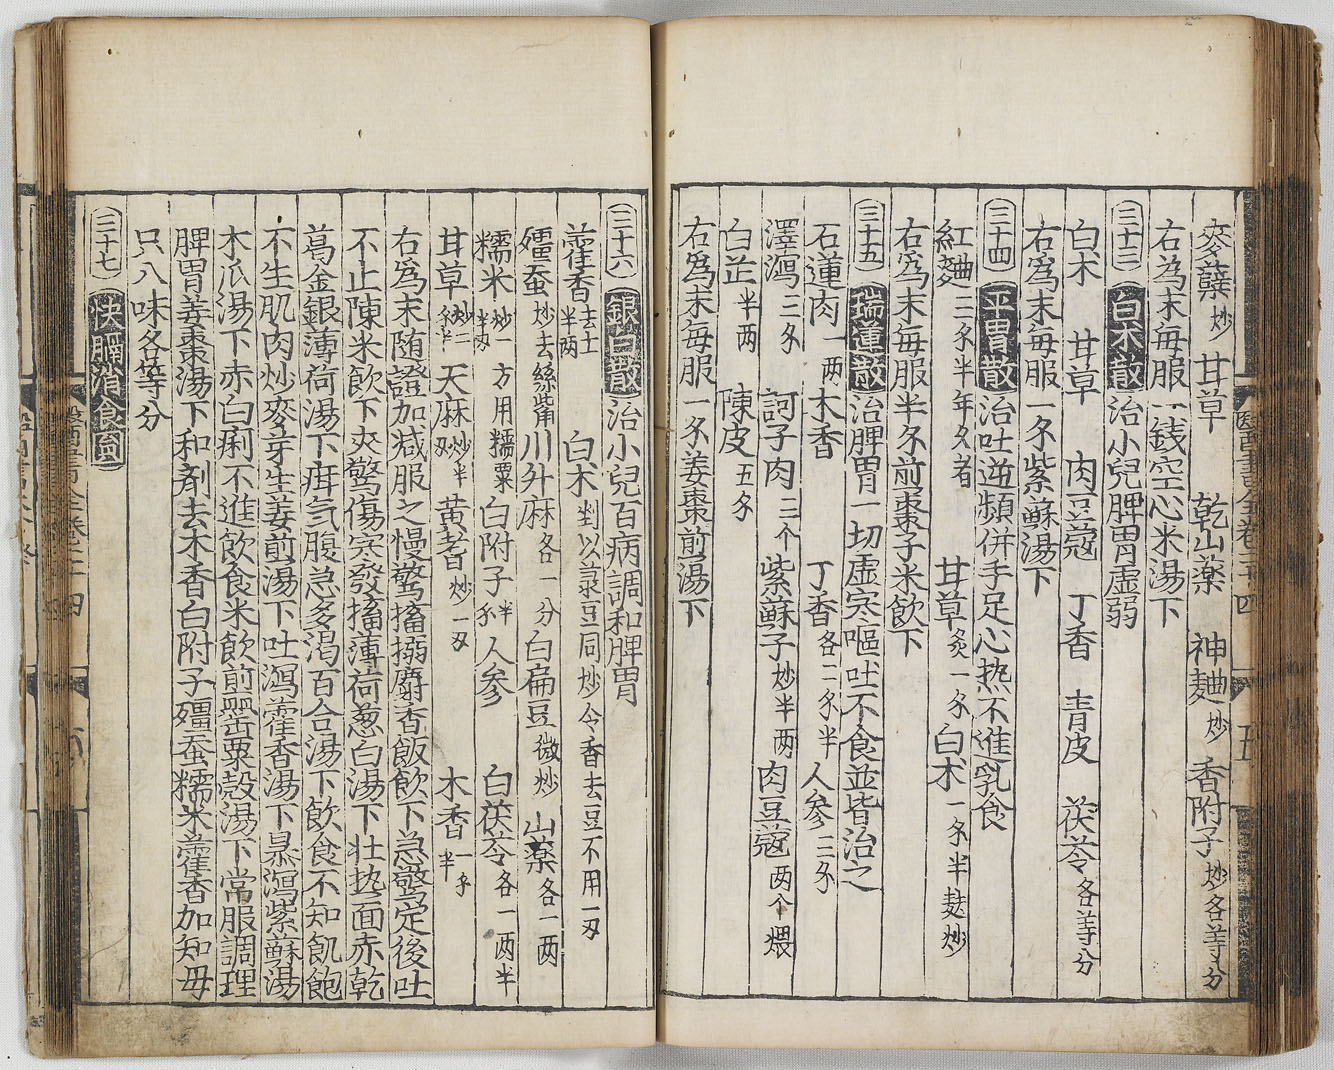 麥蘖炒 甘草 乾山藥 神麯炒 香附子炒各等分
右為末每服一錢空心米湯下
三十三 白术散 治小兒脾胃虛弱
白术 甘草 肉豆蔻 丁香 青皮 茯苓各等分
右為末每服一錢紫蘇湯下
三十四 平胃散 治吐逆頻併手足心热不進乳食
紅麯三錢半年久者 甘草炙一錢 白术一錢半麩炒
右為末每服半錢煎棗子米飲下
三十五 瑞蓮散 治脾胃一切虛寒嘔吐不食並皆治之
石蓮肉一两 木香 丁香各二錢半 人參二錢
澤瀉三錢 訶子肉三个 紫蘇子炒半两 肉豆蔻两个煨
白芷半两 陳皮五錢
右為末每服一錢姜棗煎湯下
三十六 銀白散 治小兒百病調和脾胃
藿香去土半两 白术剉以菉豆同炒令香去豆不用一刄
殭蚕炒去絲觜 川升麻各一分 白扁豆微炒 山藥各一两
糯米炒一半两 方用糯粟 白附子半錢 人參 白茯苓各一两半
甘草炒二錢半 天麻炒半刄 黄耆炒一刄 木香一錢半
右為末随證加减服之慢驚搐搦麝香飯飲下急驚定後吐
不止陳米飲下夾驚傷寒發搐薄荷葱白湯下壮热面赤乾
葛金銀薄荷湯下疳气腹急多渴百合湯下飲食不知飢飽
不生肌肉炒麥芽生姜煎湯下吐瀉藿香湯下暴瀉紫蘇湯
木瓜湯下赤白痢不進飲食米飲煎罂粟殼湯下常服調理
脾胃姜棗湯下和劑去木香白附子殭蚕糯米藿香加知毋
只八味各等分
三十七 快膈消食圓
醫書全卷二十四 五